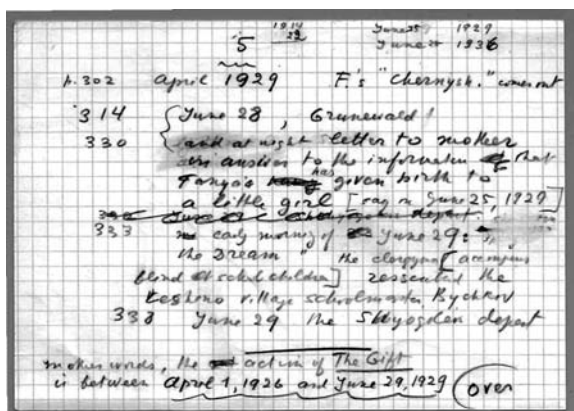 5 1914 29 June 25 1929
June 25 1936
p. 302 April 1929 F.'s "Chernysh." comes out
314 June 28, Grunewald!
330 and at night letter to mother
in answer to the information that
Tanya's has given birth to
a little girl [say on June 25, 1929]
333 early morning of June 29:
the Dream " the clergyman [accompanies
blind school children] resembled the
Leshino village schoolmaster Bychkov
338 June 29 the Shchyogolev depart
In other words, the action of The Gift
is between April 1, 1926 and June 29, 1929 (over